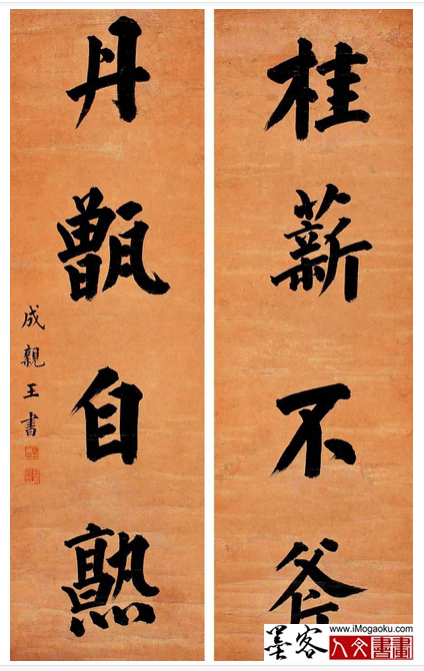 桂薪不斧
丹甑自熟
成親王書
www.iMogaoku.com
墨客
人文書畫